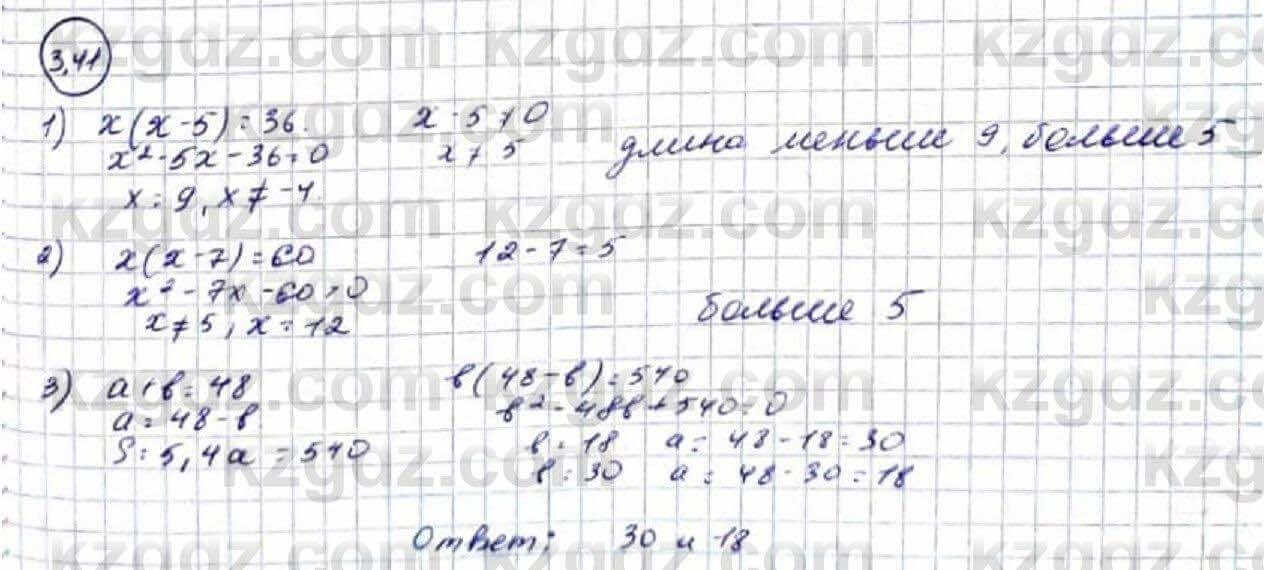 3,41
1) x(x-5)=36. x-5>0
x²-5x-36=0 x>5 длина меньше 9, больше 5
x=9, x≠-4.
2) x(x-7)=60 12-7=5
x²-7x-60>0
x≠5, x=12 больше 5
3) a+b=48 b(48-b)=540
a=48-b b²-48b+540=0
S=5,4a=540 b=18 a=48-18=30
b=30 a=48-30=18
Ответ: 30 и 18
kzgdz.com